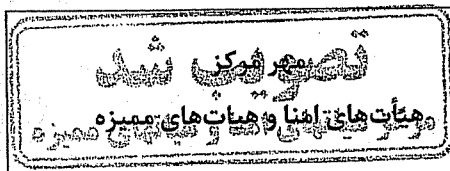 تصویب شد
مهر مرکز
هیأت‌های امنا و هیات‌های ممیزه